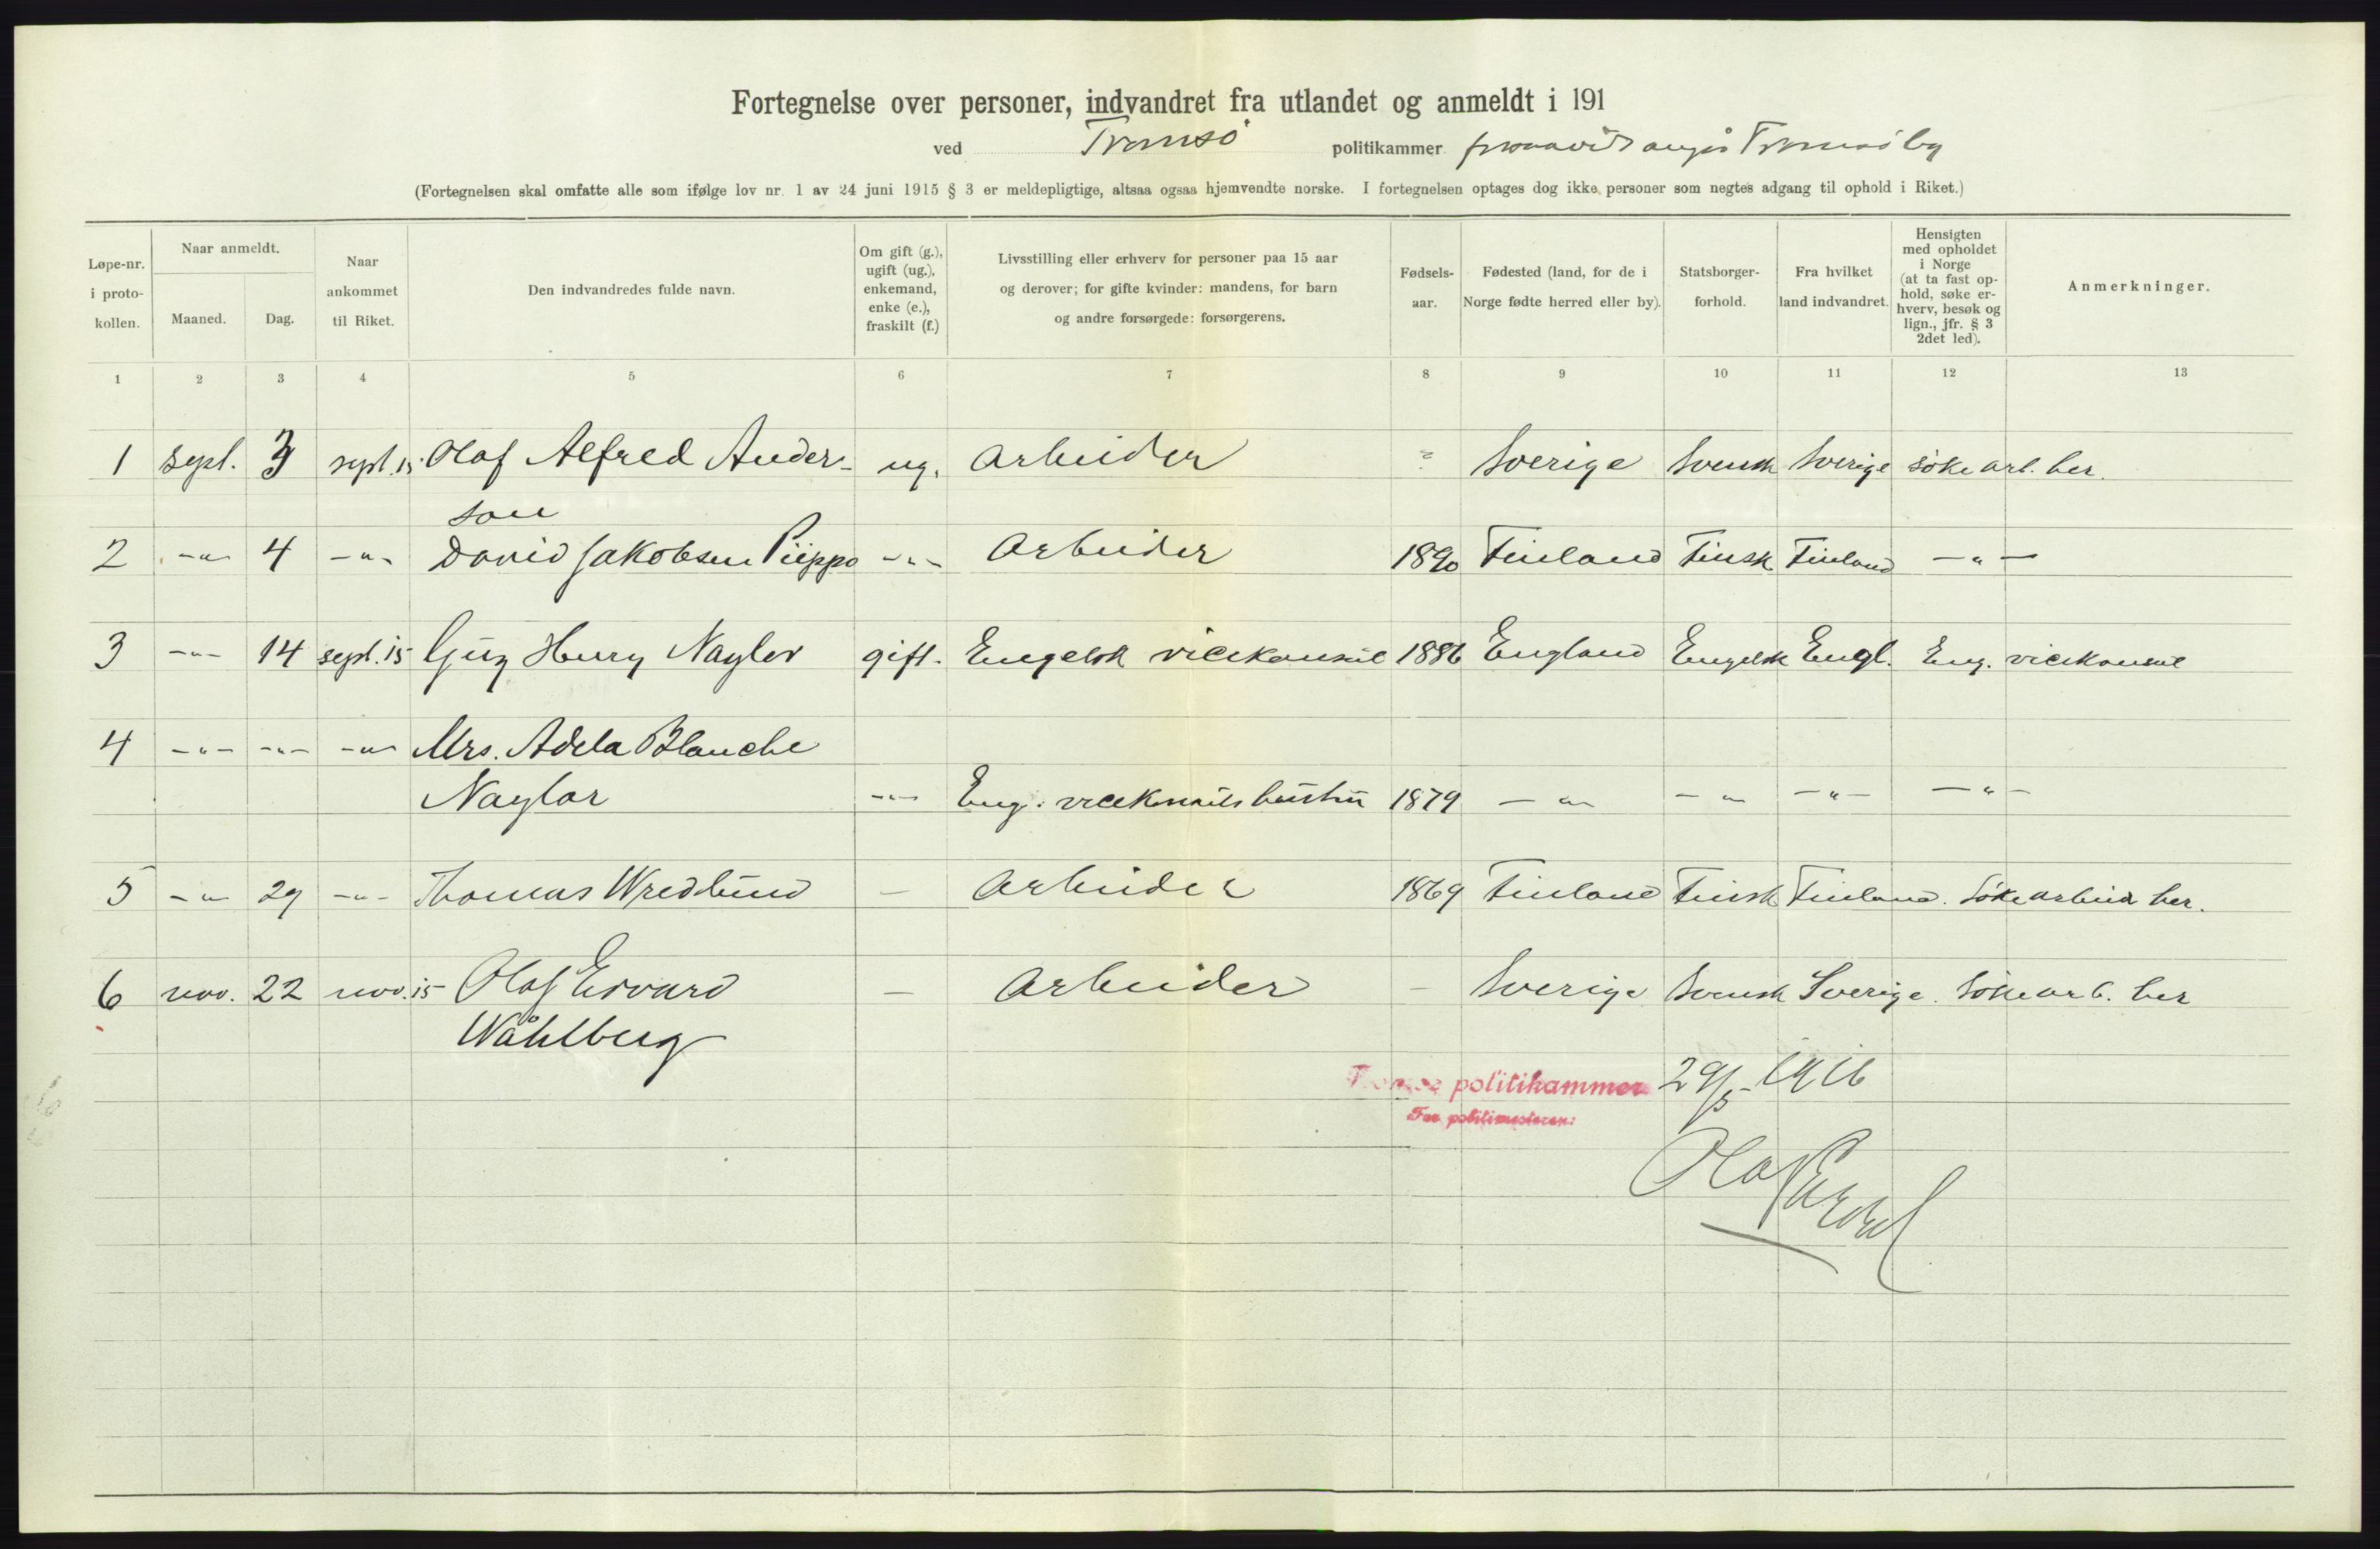 Fortegnelse over personer, indvandret fra utlandet og anmeldt i 191
ved Tromsö politikammer forsaavidt angår Tromsö by
(Fortegnelsen skal omfatte alle som ifølge lov nr. 1 av 24 juni 1915 § 3 er meldepligtige, altsaa ogsaa hjemvendte norske. I fortegnelsen optages dog ikke personer som negtes adgang til ophold i Riket.)
Løpe-nr. i proto- kollen.
Naar anmeldt.
Maaned.
Dag.
Naar ankommet til Riket.
Den indvandredes fulde navn.
Om gift (g.), ugift (ug.), enkemand, enke (e.), fraskilt (f.)
Livsstilling eller erhverv for personer paa 15 aar
og derover; for gifte kvinder: mandens, for barn
og andre forsørgede: forsørgerens.
Fødsels- aar.
Fødested (land, for de i
Norge fødte herred eller by).
Statsborger- forhold.
Fra hvilket land indvandret.
Hensigten
med opholdet
i Norge
(at ta fast op-
hold, søke er-
hverv, besøk og
lign., jfr. § 3
2det led).
Anmerkninger.
1 2 3 4 5 6 7 8 9 10 11 12 13
1 sept. 3 sept. 15 Olaf Alfred Ander- ug. Arbeider Sverige Svensk Sverige söke arb. her.
son
2 -"- 4 -"- David Jakobsen Piippo -"- Arbeider 1890 Finland Finsk Finland -"-
3 -"- 14 sept. 15 Guy Henry Naylor gift. Engelsk vicekonsul 1886 England Engelsk Engl. Eng. vicekonsul
4 -"- -"- -"- Mrs. Adela Blanche
Naylor -"- Eng. vicekonsuls hustru 1879 -"- -"- -"- -"-
5 -"- 29 -"- Thomas Wredlund - Arbeider 1869 Finland Finsk Finland. Söke arbeid her.
6 nov. 22 nov. 15 Olaf Edvard - Arbeider - Sverige Svensk Sverige. Söke arb. her
Wåhlberg
Tromsø politikammer 29/5-1916
For politimesteren:
Olaf